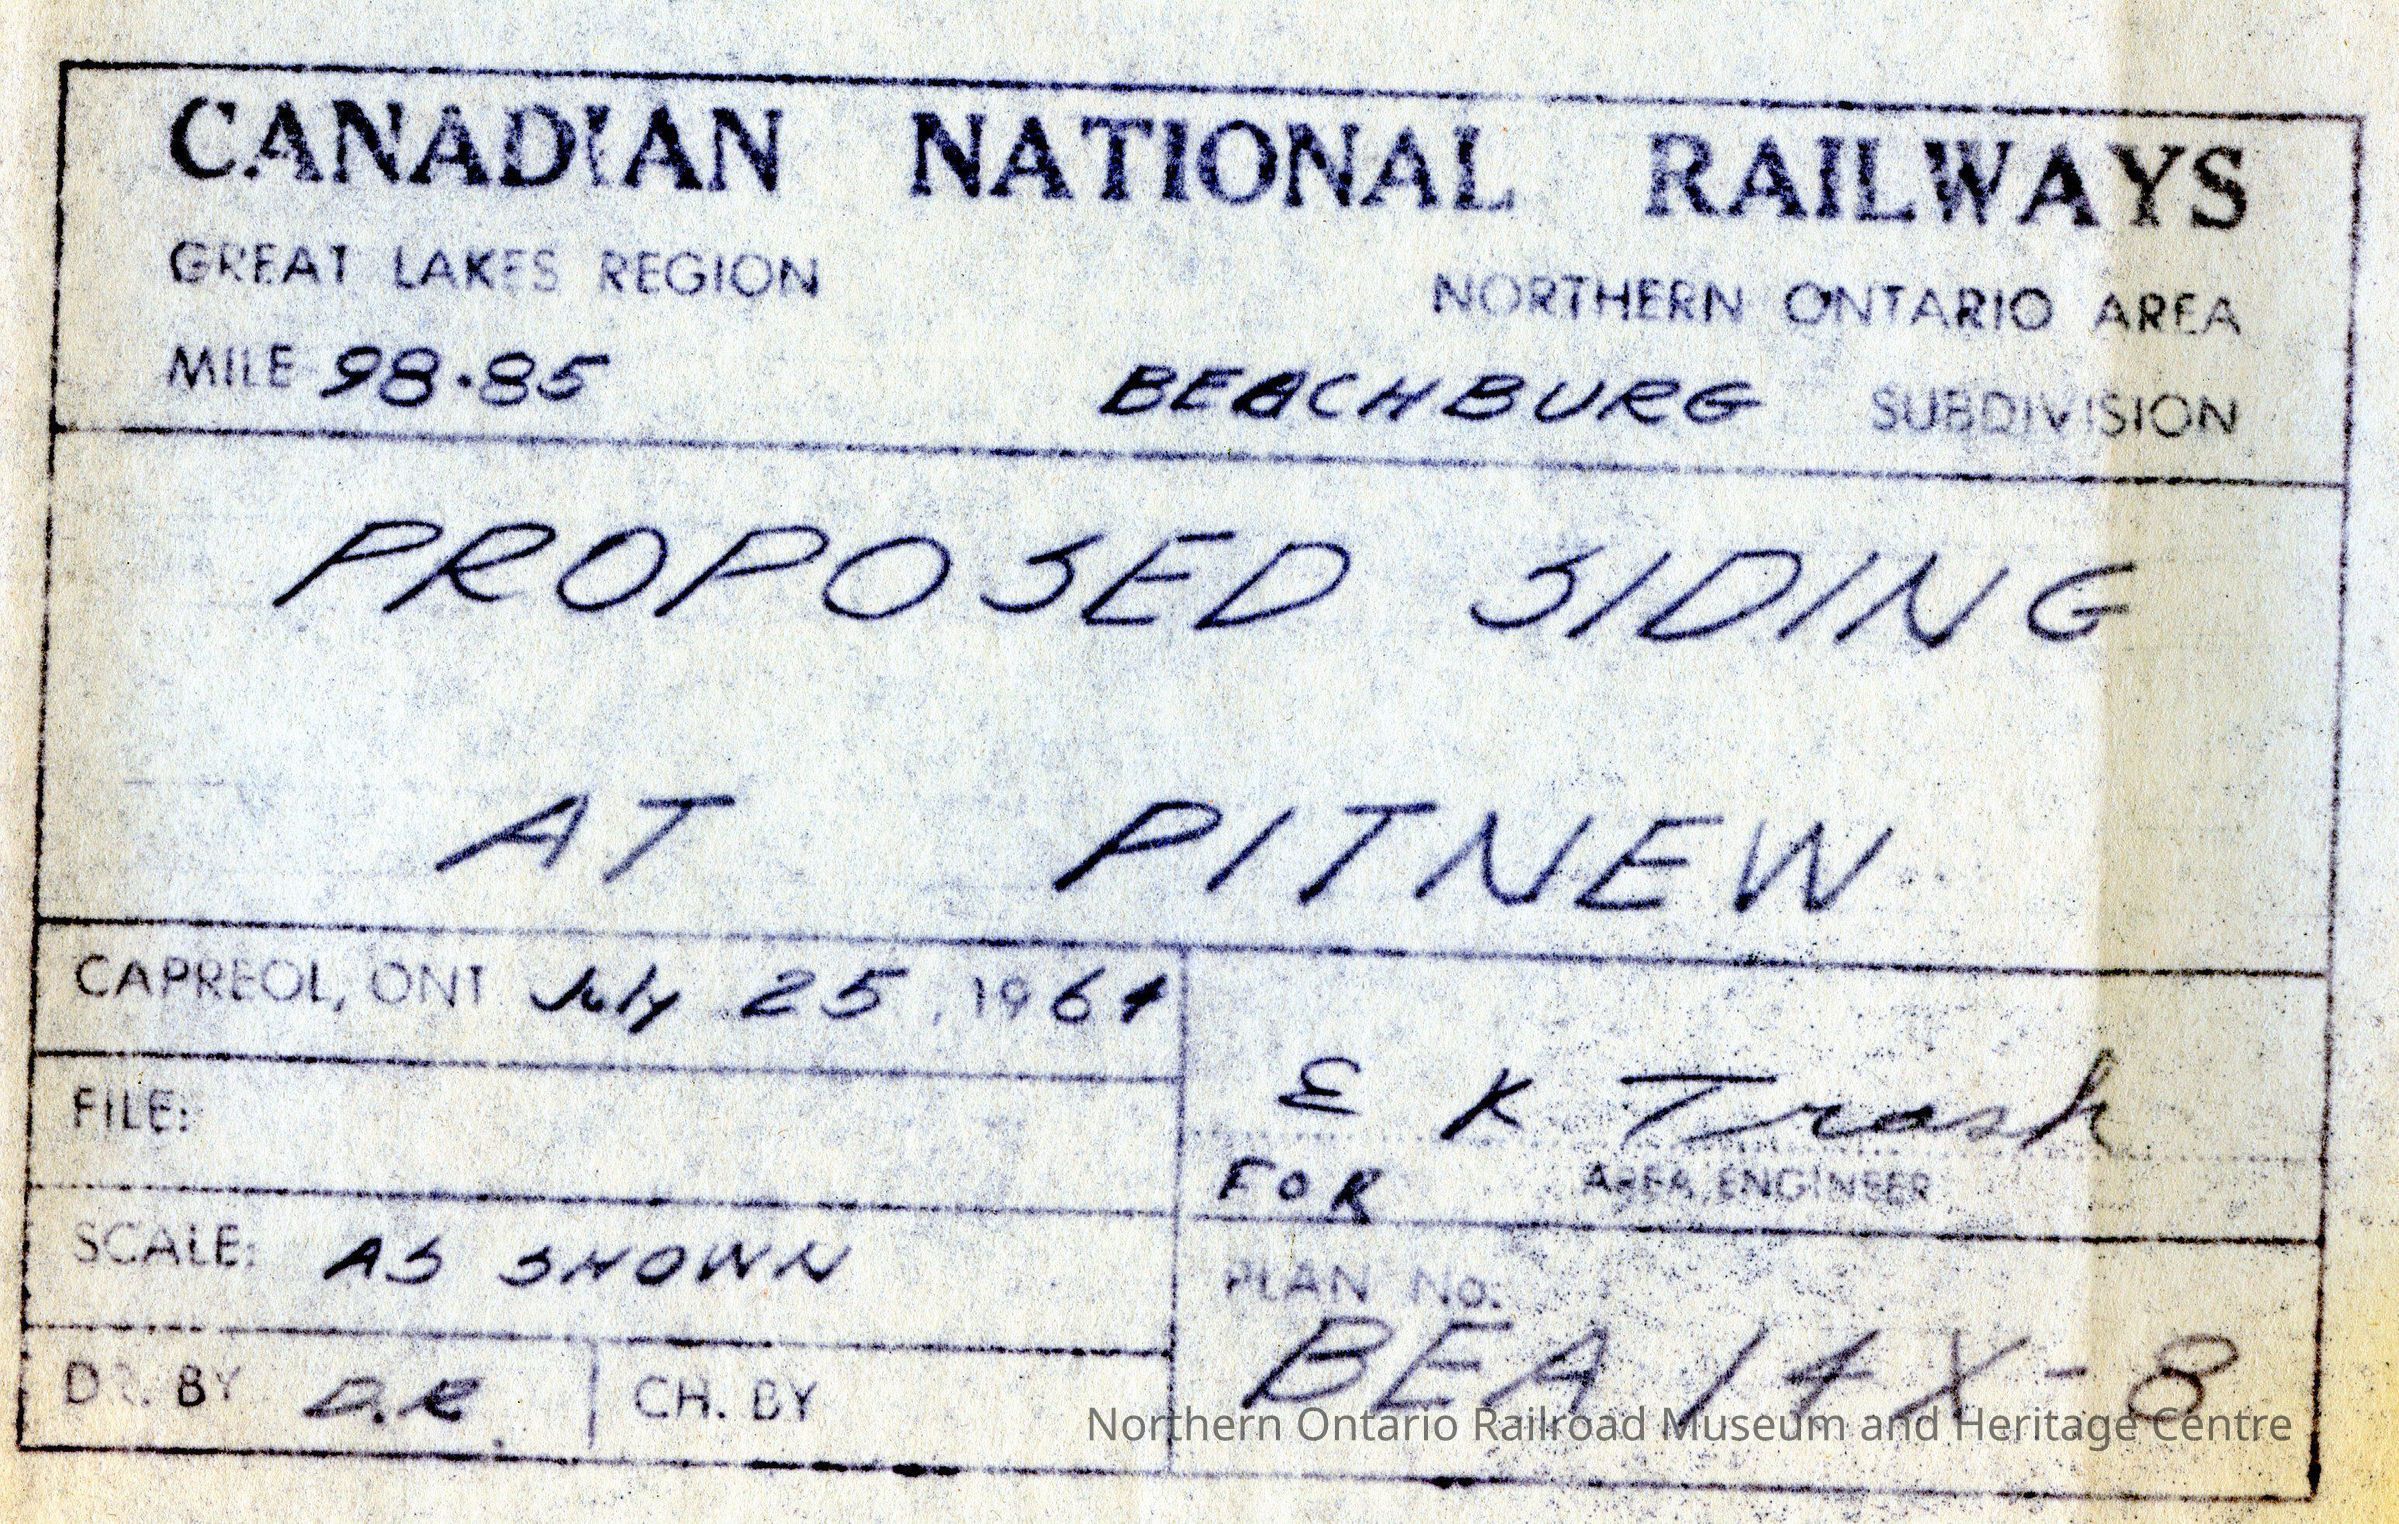 CANADIAN NATIONAL RAILWAYS
GREAT LAKES REGION NORTHERN ONTARIO AREA
MILE 98.85 BEACHBURG SUBDIVISION
PROPOSED SIDING
AT PITNEW
CAPREOL, ONT July 25, 1964
FILE:
SCALE: AS SHOWN
DR. BY D.R. CH. BY
E K Trask
FOR AREA ENGINEER
PLAN No.
BEA 14X-8
Northern Ontario Railroad Museum and Heritage Centre